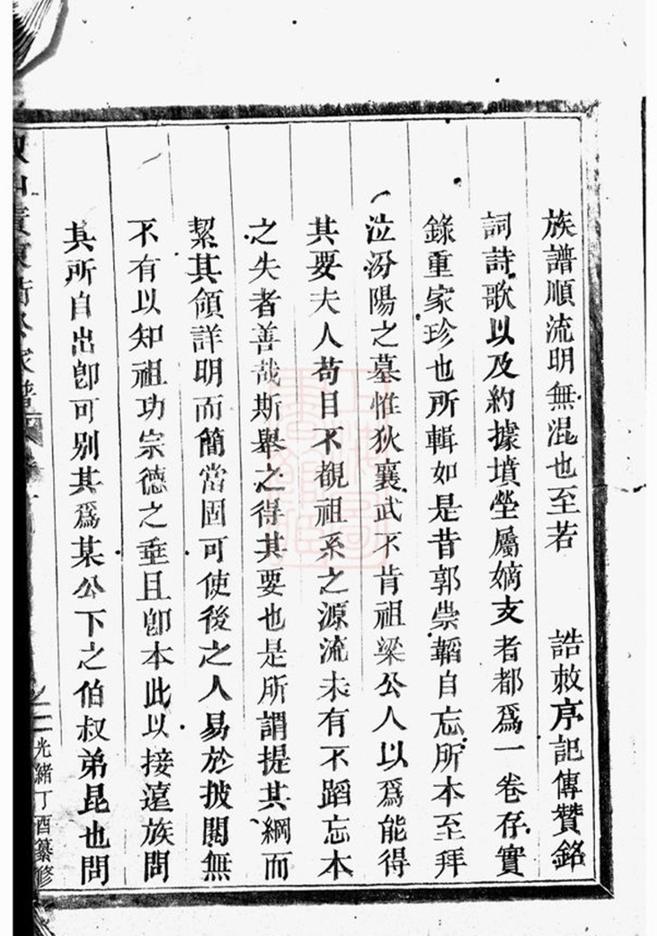 族譜順流明無混也至若 誥敕序記傳贊銘
詞詩歌以及約據墳塋屬嫡支者都爲一卷存實
錄重家珍也所輯如是昔郭崇韜自忘所本至拜
泣汾陽之墓惟狄襄武不肯祖梁公人以爲能得
其要夫人苟目不覩祖系之源流未有不蹈忘本
之失者善哉斯舉之得其要也是所謂提其綱而
絜其領詳明而簡當固可使後之人易於披閱無
不有以知祖功宗德之垂且卽本此以接遠族問
其所自出卽可別其爲某公下之伯叔弟昆也問
之二 光緒丁酉纂修